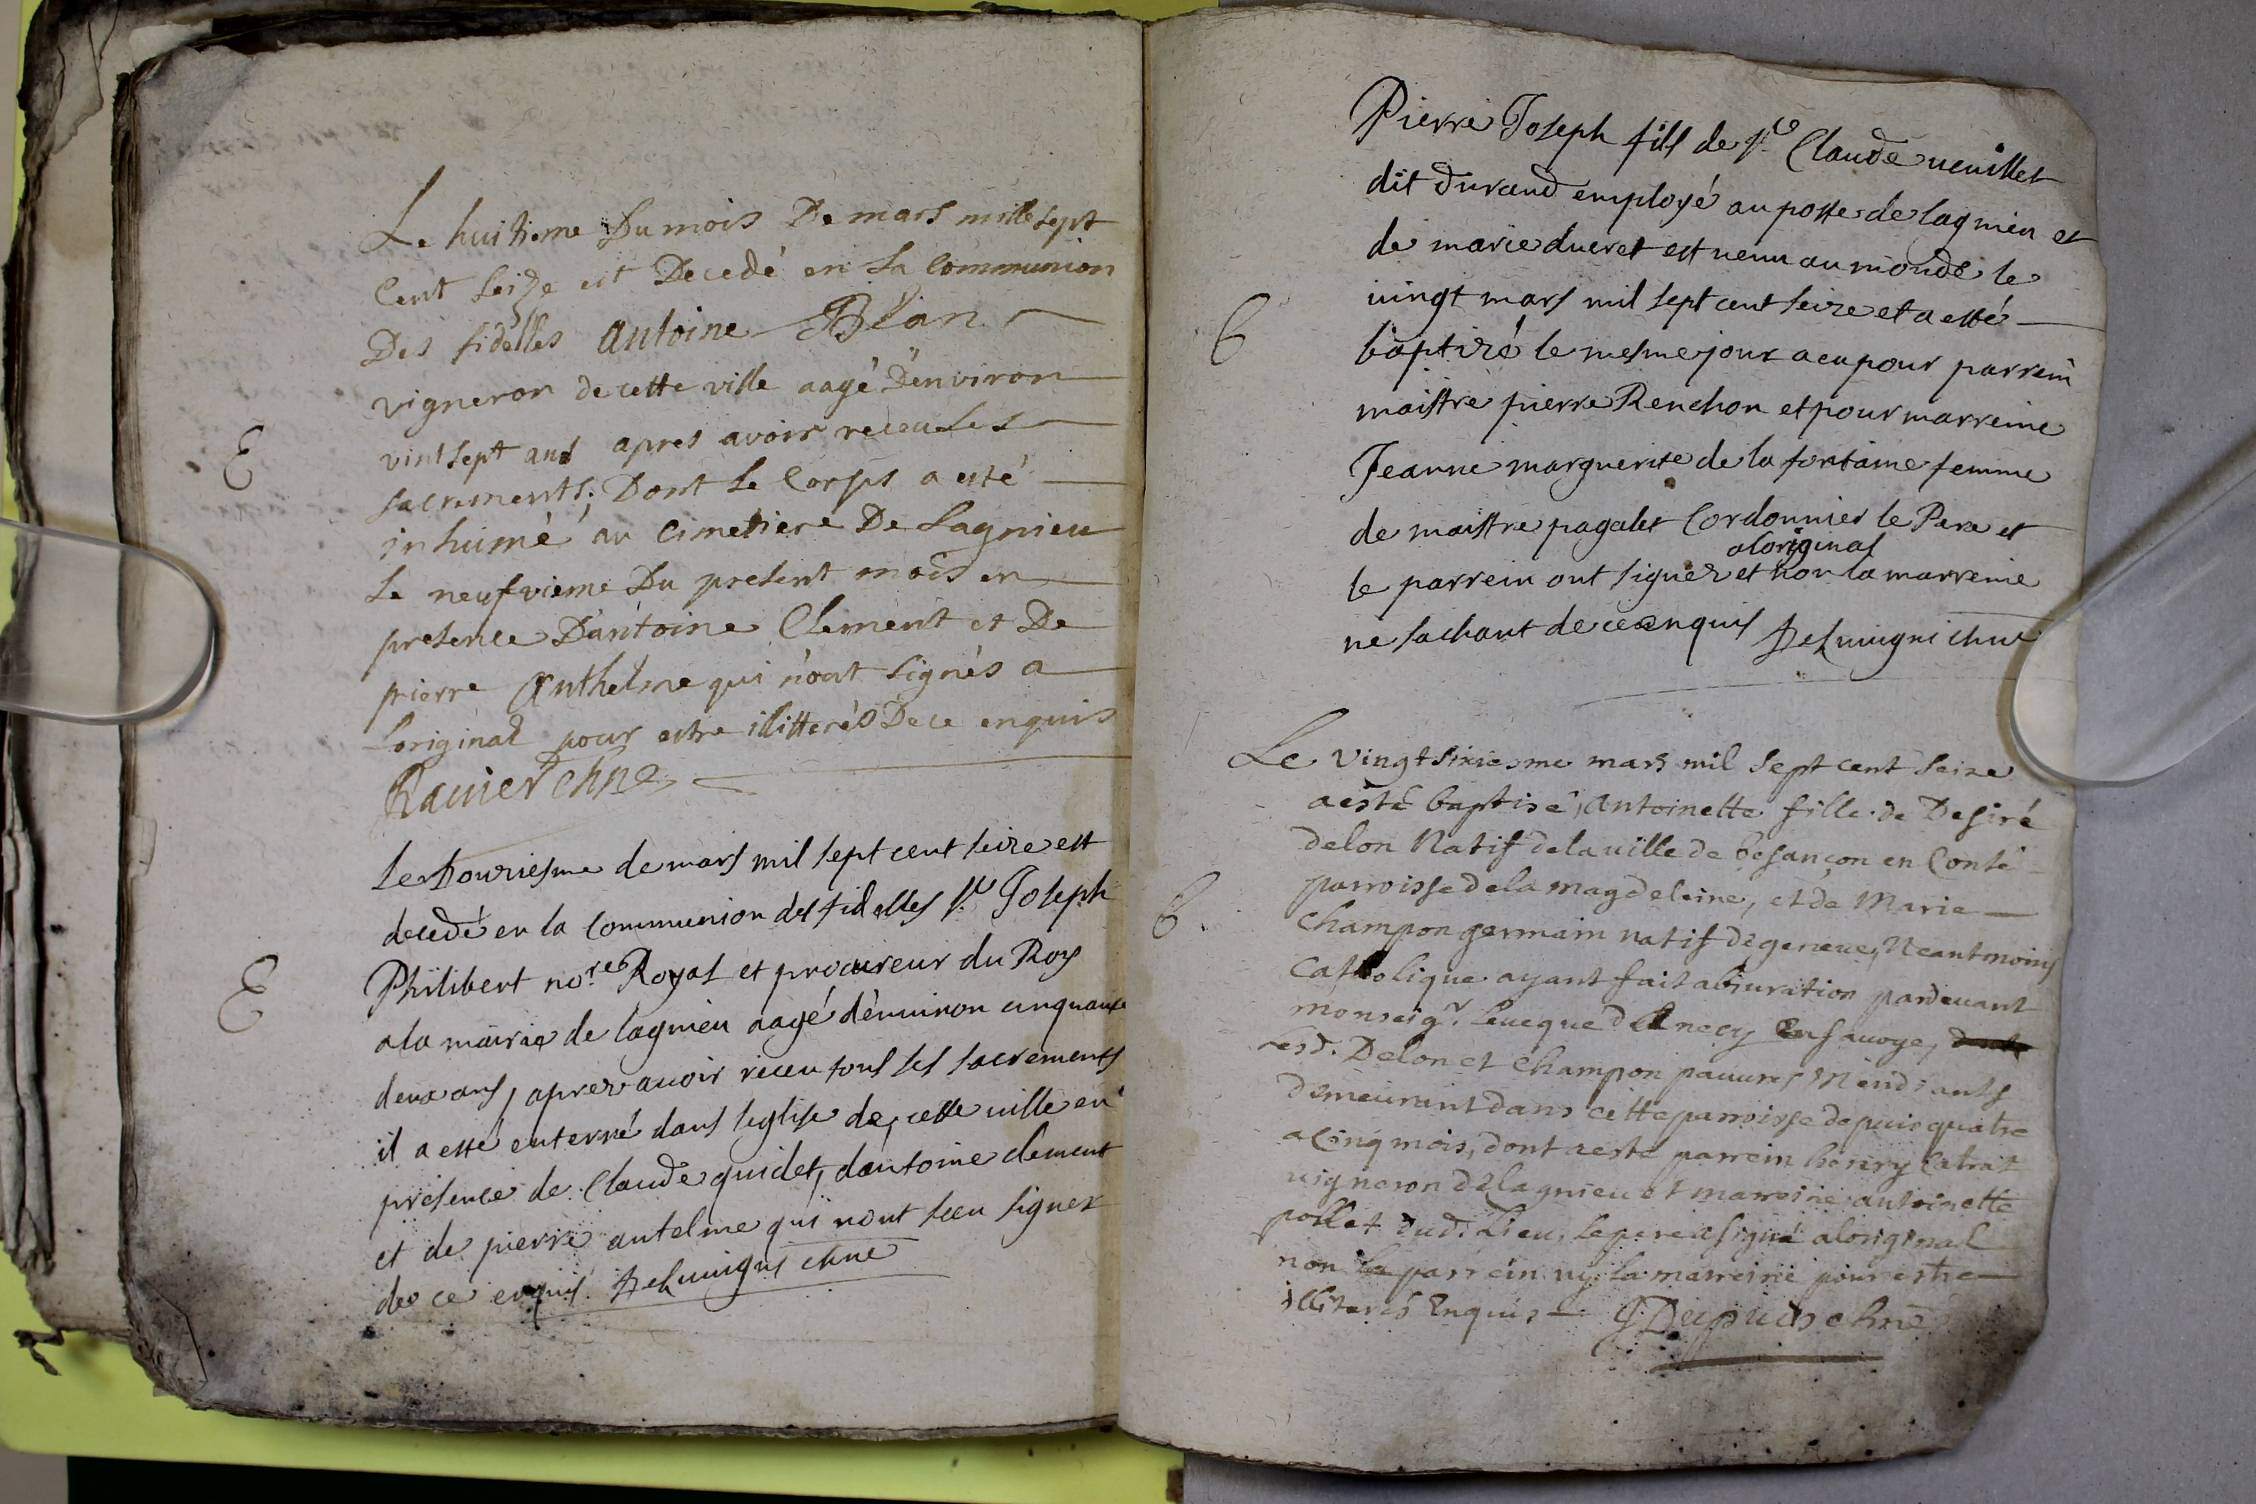 Le huitieme Du mois De mars mille sept
Cent seize est Decedé en La Communion
Des fidelles antoine Blan
vigneron de cette ville aagé D'environ
E
vint sept ans apres avoir receu Les
sacrements; Dont Le Corps a esté
inhumé au Cimetiere De Lagnieu
Le neufvieme Du present mois en
presence D'antoine Clement et De
pierre Anthelme qui n'ont signés a
L'original pour estre illitterés De ce enquis
Ravier chne
Le Douziesme de mars mil sept cent seize est
decedé en la Communion des fidelles sr Joseph
E
Philibert nore Royal et procureur du Roy
a la mairie de lagnieu aagé d'environ cinquante
deux ans, aprez avoir receu tous les sacrements
il a esté enterré dans leglise de cette ville en
presence de Claude guidet, dantoine clement
et de pierre antelme qui n'ont sceu signer
de ce enquis chne
Pierre Joseph fils de sr Claude veuillet
dit durand employé au poste de lagnieu et
de marie ducret est venu au monde le
vingt mars mil sept cent seize et a esté
B
baptizé le mesme jour a eu pour parrein
maistre pierre Renchon et pour marreine
Jeanne marguerite de la fontaine femme
de maistre pagalet Cordonnier le Pere et
aloriginal
le parrein ont signez et non la marreine
ne sachant de ce enquis chne
Le vingt sixiesme mars mil sept cent seize
a esté baptisé, Antoinette fille de Desiré
delon Natif de la ville de besançon en Conté
parroisse de la magdeleine, et de Marie
B.
Champon germain natif de geneve, Neantmoins
Catholique ayant fait abiuration pardevant
monseigr. Leveque d'Annecy En savoye,
resd. Delon et Champon pauvres Mendiants
demeurint dans cette parroisse depuis quatre
a Cinq mois, dont a esté parrein henry Catrat
vigneron de Lagnieu et marreine antoinette
pollet dud. Lieu, le pere a signé aloriginal
non le parrein ny la marreine pour estre
illiterés Enquis Dupuis chne